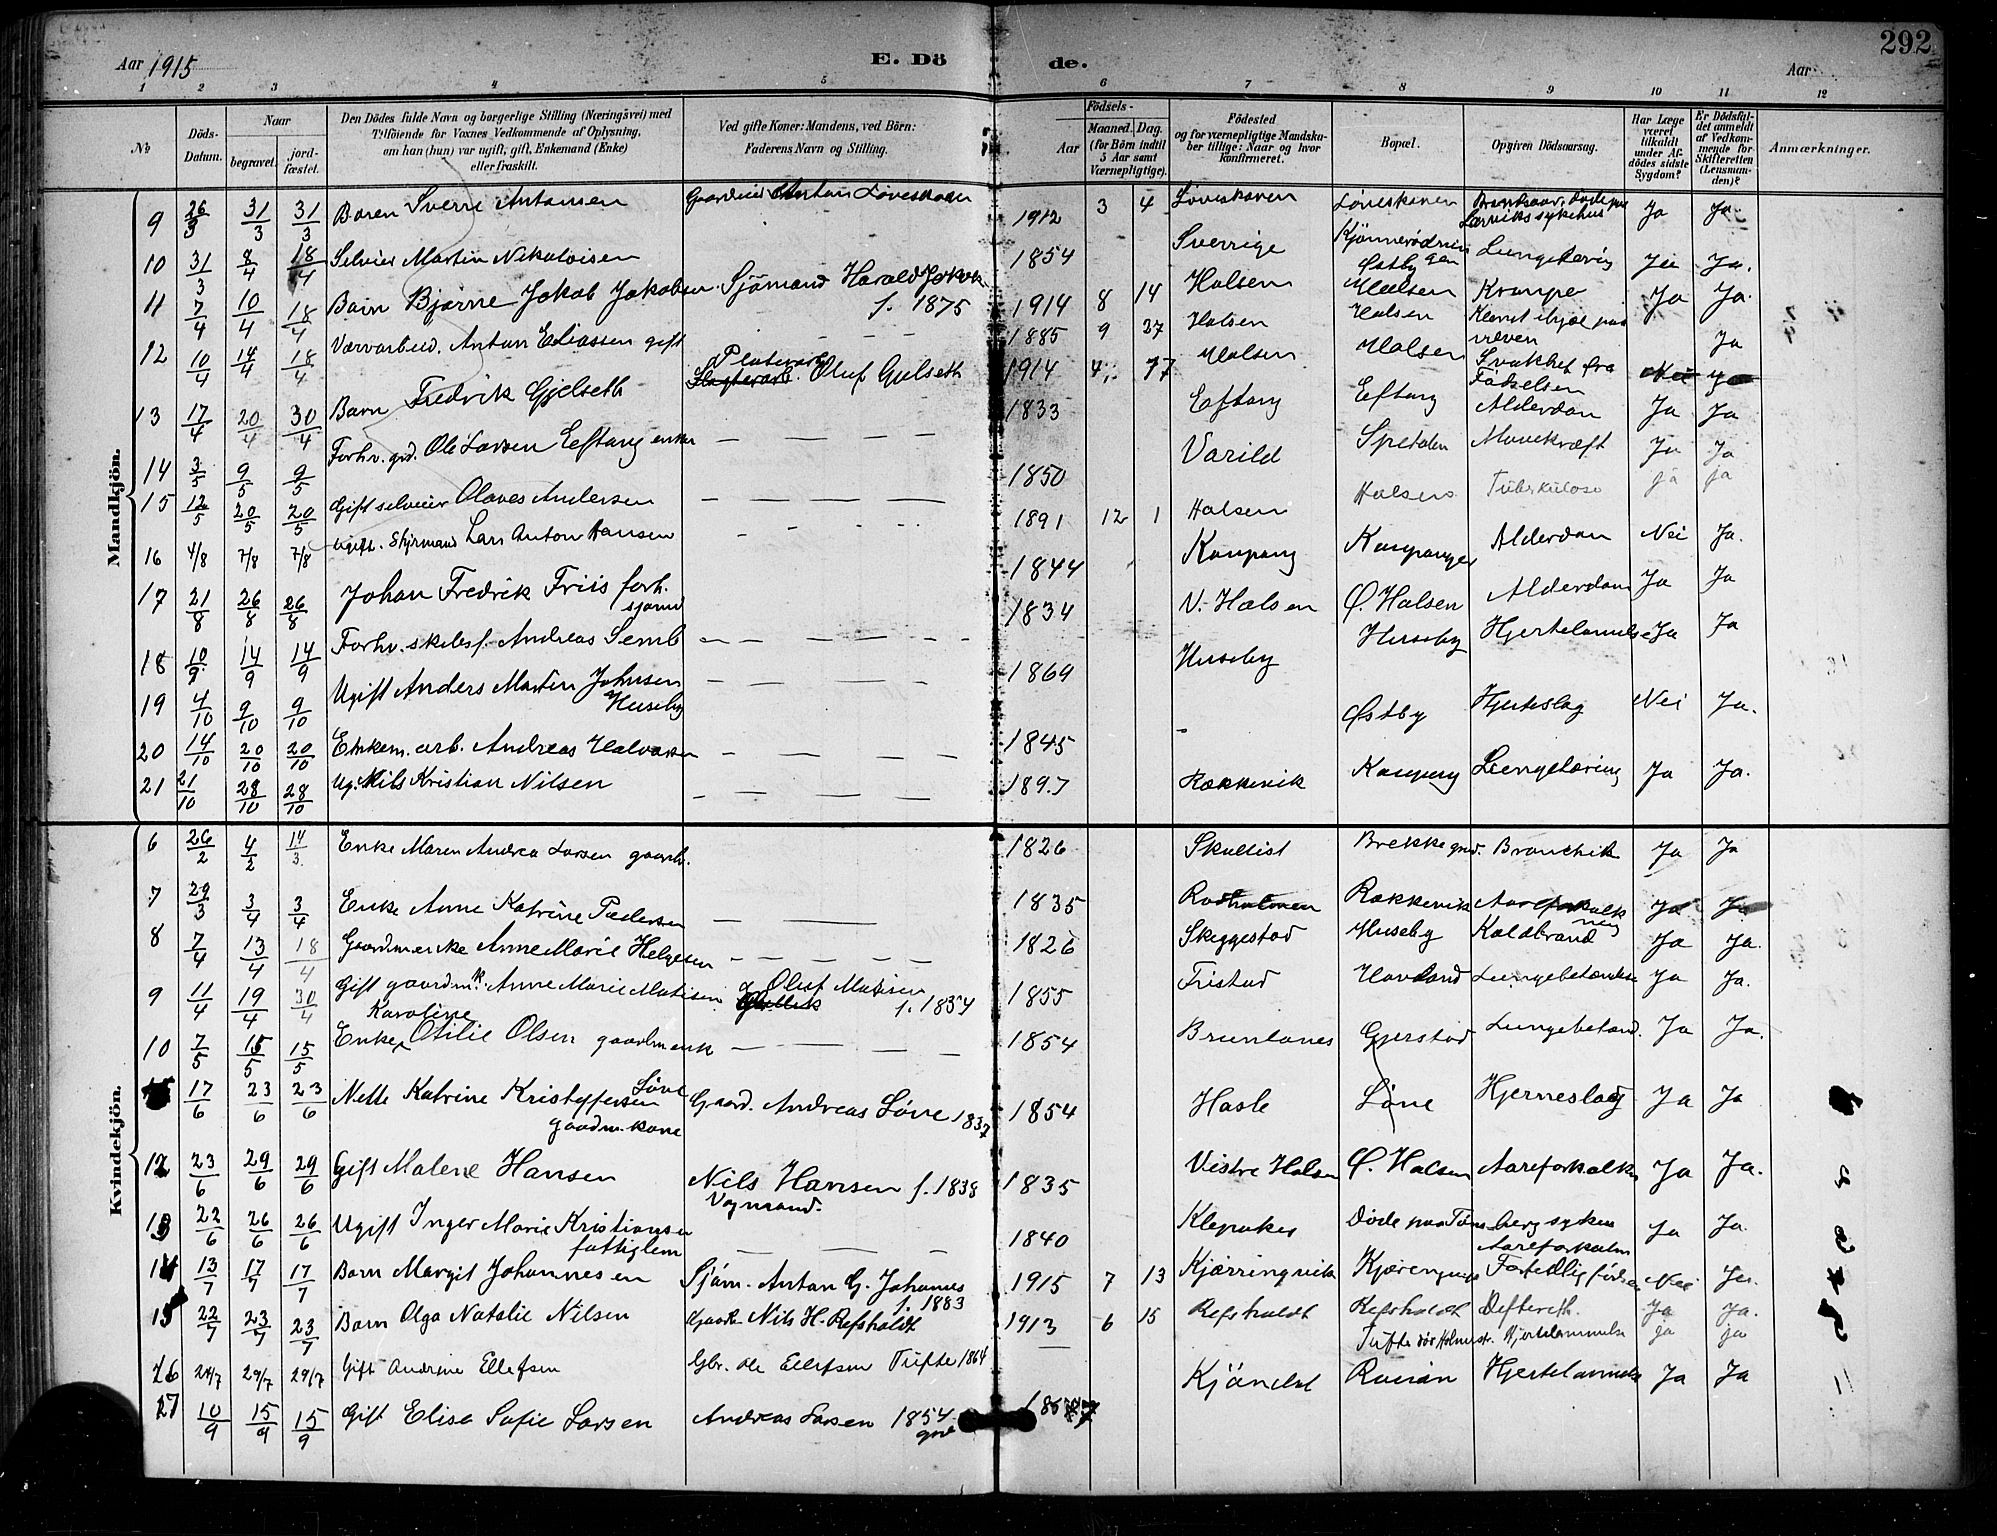 Aar 1915
E. Dö de.
292
Aar
1 2 3 4 5 6 7 8 9 10 11 12
No
Döds-Datum.
Naar
begravet.
jord-fæstet.
Den Dödes fulde Navn og borgerlige Stilling (Næringsvei) med Tilföiende for Voxnes Vedkommende af Oplysning, om han (hun) var ugift, gift, Enkemand (Enke) eller fraskilt.
Ved gifte Koner: Mandens, ved Börn: Faderens Navn og Stilling.
Födsels-
Aar
Maaned. Dag.
(for Börn indtil 5 Aar samt Værnepligtige).
Födested og for værnepligtige Mandskaber tillige: Naar og hvor konfirmeret.
Bopæl.
Opgiven Dödsaarsag.
Har Læge været tilkaldt under Afdödes sidste Sygdom?
Er Dödsfaldet anmeldt af Vedkommende for Skifteretten (Lensmanden)?
Anmærkninger.
Mandkjön.
9 26/3 31/3 31/3 Baren Sverre Antonsen Anton Løveskoven 1912 3 4 Løveskoven Løveskoven Larviks sykehus Ja Ja
10 31/3 8/4 18/4 Selveier Martin Nikolaisen 1854 Sverrige Østby Lungetæring Ja Ja.
11 7/4 10/4 18/4 Barn Bjarne Jakob Jakobsen Sjömand Harald Jakob f. 1875 1914 8 14 Halsen Halsen Krampe Ja Ja
12 10/4 14/4 18/4 Værvarbeid. Anton Eliassen gift 1885 9 27 Halsen Halsen Klemt ihjel paa Ja
13 17/4 20/4 30/4 Barn Fredrik Gjelseth Oluf Gulseth 1914 4 17 Halsen Halsen Svakhet fra Fødselen Nei Ja
14 3/5 9/5 9/5 Forhv. grd. Ole Larsen Eftang enkem 1833 Eftang Eftang Alderdom Ja Ja
15 12/5 20/5 20/5 Gift selveier Olaves Andersen 1850 Varild Spetalen Mavekræft Ja Ja
16 4/8 7/8 7/8 Ugift. Styrmand Lars Anton Hansen 1891 12 1 Halsen Halsen Tuberkulose ja ja
17 21/8 26/8 26/8 Johan Fredrik Friis forh. sjømd 1844 Kaupang Kaupang Alderdom Nei Ja.
18 10/9 14/9 14/9 Forhv. skibsf. Andreas Semb 1834 V. Halsen Ø. Halsen Alderdom Ja Ja
19 4/10 9/10 9/10 Ugift Anders Martin Johnsen Huseby 1869 Huseby Huseby Hjertelammelse Ja Ja
20 14/10 20/10 20/10 Enkem. arb. Andreas Halvorsen 1845 - Østby Hjerteslag Nei Ja.
21 21/10 28/10 28/10 Ug. Nils Kristian Nilsen 1897 Rækkevik Kaupang Lungetæring Ja Ja.
Kvindekjön.
6 26/2 4/2 14/3 Enke Maren Andrea Larsen gaardb. 1826 Skallist Brekke grd. Bronchit Ja Ja
7 29/3 3/4 3/4 Enke Anne Katrine Pedersen 1835 Rødholmen Rækkevik Aareforkalkning Ja Ja
8 7/4 13/4 18/4 Gaardm.enke Anne Marie Helgesen 1826 Skeggestad Huseby Koldbrand Ja Ja.
9 11/4 19/4 30/4 Gift gaardmk. Anne Marie Matisen Oluf Matisen f. 1854 1855 Tristad Havland Lungebetændelse Ja Ja.
10 7/5 15/5 15/5 Enke Karoline Otilie Olsen gaardmenk 1854 Brunlanes Gjerstad Lungebetænd. Ja Ja.
17/6 23/6 23/6 Nelle Katrine Kristoffersen Løve gaardm. kone Gaard. Andreas Løve 1837 1854 Hasle Løve Hjerneslag Ja Ja
12 23/6 29/6 29/6 Gift Malene Hansen Nils Hansen f. 1838 Vognmand. 1835 Vestre Halsen Ø. Halsen Aareforkalkn Ja Ja.
13 22/6 26/6 26/6 Ugift Inger Marie Kristiansen fattiglem 1840 Klepaker Døde paa Tønsberg sykeh Aareforkalkn Ja Ja.
14 13/7 17/7 17/7 Barn Margit Johannesen Sjöm. Anton G. Johannes f. 1883 1915 7 13 Kjærringvik Fortidlig født Nei Ja.
15 22/7 23/7 23/7 Barn Olga Natalie Nilsen Gaardb. Nils H. Refsholdt 1913 6 15 Refsholdt Refsholdt Difterith. Ja Ja.
16 24/7 29/7 29/7 Gift Andrine Ellefsen Gbr. Ole Ellefsen Tufte 1864 Tufte Hjertelammelse ja ja
17 10/9 15/9 15/9 Gift Elisa Sofie Larsen Andreas Larsen 1854 Kjöndal Hjertelammelse Ja Ja